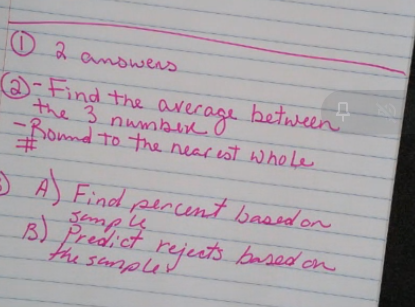 ① 2 answers
② - Find the average between
the 3 number
- Round to the nearest whole
#
A) Find percent based on
sample
B) Predict rejects based on
the sample.